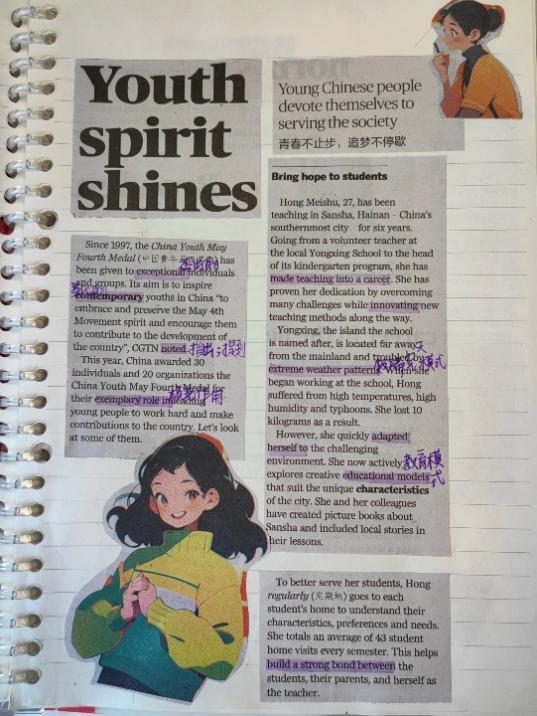 Youth
spirit
shines
Young Chinese people
devote themselves to
serving the society
青春不止步，追梦不停歇
Since 1997, the China Youth May
Fourth Medal (中国青年五四奖章) has
杰出的
been given to exceptional individuals
and groups. Its aim is to inspire
contemporary youths in China “to
embrace and preserve the May 4th
Movement spirit and encourage them
to contribute to the development of
the country”, CGTN noted. 指出
This year, China awarded 30
individuals and 20 organizations the
China Youth May Fourth Medal for
their exemplary role in leading
young people to work hard and make
contributions to the country. Let's look
at some of them.
Bring hope to students
Hong Meishu, 27, has been
teaching in Sansha, Hainan – China's
southernmost city – for six years.
Going from a volunteer teacher at
the local Yongxing School to the head
of its kindergarten program, she has
made teaching into a career. She has
proven her dedication by overcoming
many challenges while innovating new
teaching methods along the way.
Yongxing, the island the school
is named after, is located far away
from the mainland and troubled by
extreme weather patterns. When she
began working at the school, Hong
suffered from high temperatures, high
humidity and typhoons. She lost 10
kilograms as a result.
However, she quickly adapted
herself to the challenging
environment. She now actively 教育模
explores creative educational models 式
that suit the unique characteristics
of the city. She and her colleagues
have created picture books about
Sansha and included local stories in
their lessons.
To better serve her students, Hong
regularly (定期地) goes to each
student's home to understand their
characteristics, preferences and needs.
She totals an average of 43 student
home visits every semester. This helps
build a strong bond between the
students, their parents, and herself as
the teacher.